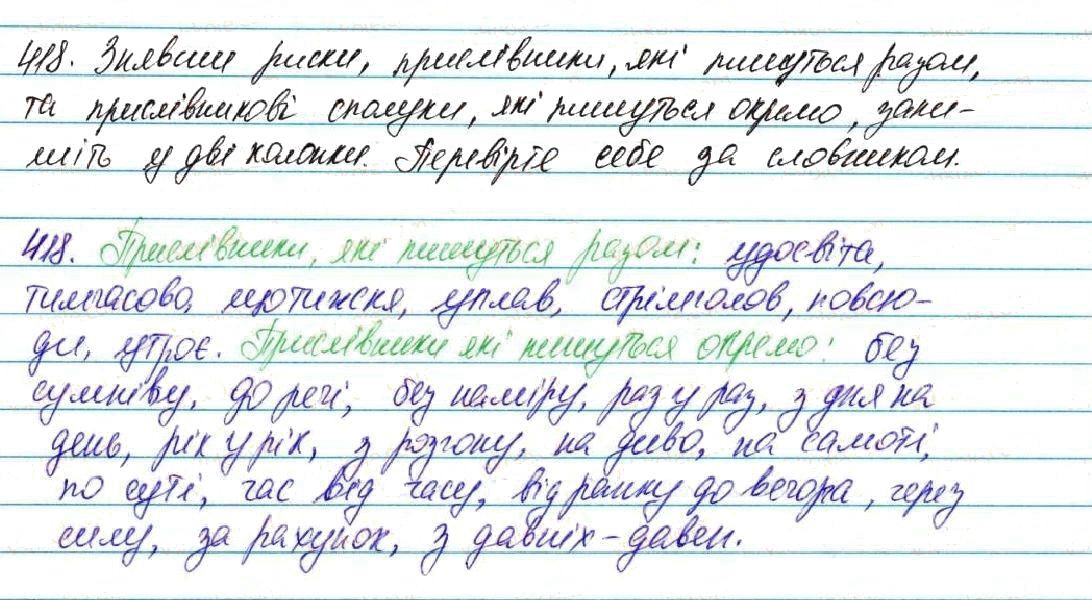 418. Знявши риски, прислівники, які пишуться разом,
та прислівникові сполуки, які пишуться окремо, запи-
шіть у дві колонки. Перевірте себе за словником.
418. Прислівники, які пишуться разом: удосвіта,
тимчасово, щотижня, уплав, стрімголов, повсю-
ди, утроє. Прислівники які пишуться окремо: без
сумніву, до речі, без наміру, раз у раз, з дня на
день, рік у рік, з розгону, на диво, на самоті,
по суті, час від часу, від ранку до вечора, через
силу, за рахунок, з давніх-давен.